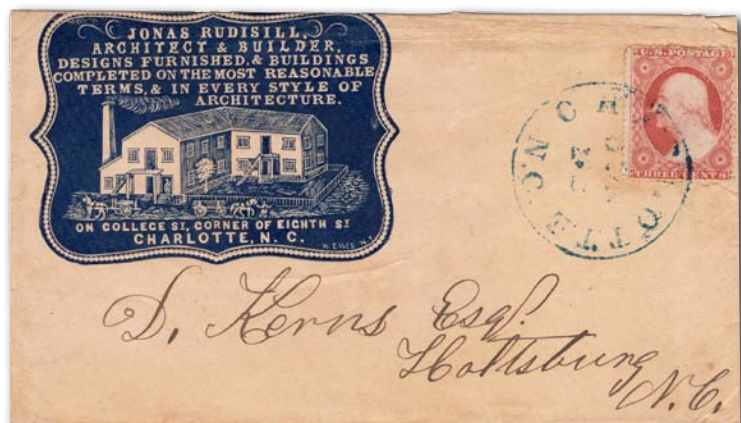 JONAS RUDISILL,
ARCHITECT & BUILDER.
DESIGNS FURNISHED, & BUILDINGS
COMPLETED ON THE MOST REASONABLE
TERMS, & IN EVERY STYLE OF
ARCHITECTURE.
ON COLLEGE ST, CORNER OF EIGHTH ST
CHARLOTTE, N. C.
U.S. POSTAGE
THREE CENTS
CHARLOTTE N.C.
S. Kerns Esqr.
Holtsburg
N.C.